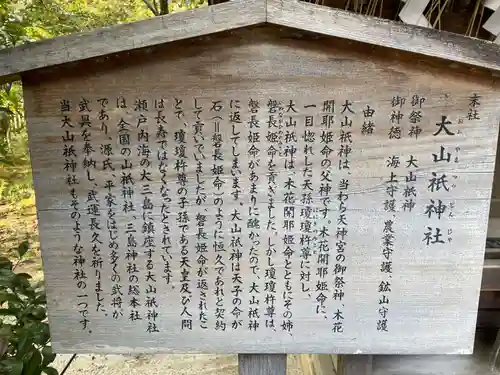 末社
大山祇神社
おおやまづみじんじゃ
御祭神 大山祇神
御神徳 海上守護 農業守護 鉱山守護
由緒
大山祇神は、当わら天神宮の御祭神、木花
開耶姫命の父神です。木花開耶姫命に、
一目惚れした天孫瓊瓊杵尊に対し、
大山祇神は、木花開耶姫命とともにその姉、
磐長姫命を貢ぎました。しかし瓊瓊杵尊は、
磐長姫命があまりに醜かったので、大山祇神
に返してしまいます。大山祇神は天子の命が
石(=磐長姫命)のように恒久であれと契約
して貢いでいましたが、磐長姫命が返されたこ
とで、瓊瓊杵尊の子孫である天皇及び人間
は長寿ではなくなったとされています。
瀬戸内海の大三島に鎮座する大山祇神社
は、全国の山祇神社、三島神社の総本社
であり、源氏、平家をはじめ多くの武将が
武具を奉納し、武運長久を祈りました。
当大山祇神社もそのような神社の一つです。